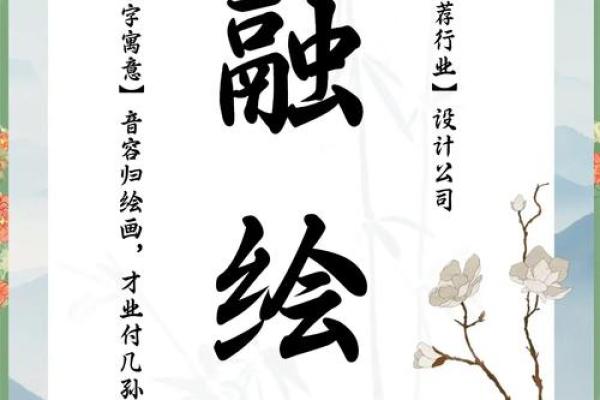 荐行业】设计公司
融绘
字寓意】音容归绘画，才业付几孙